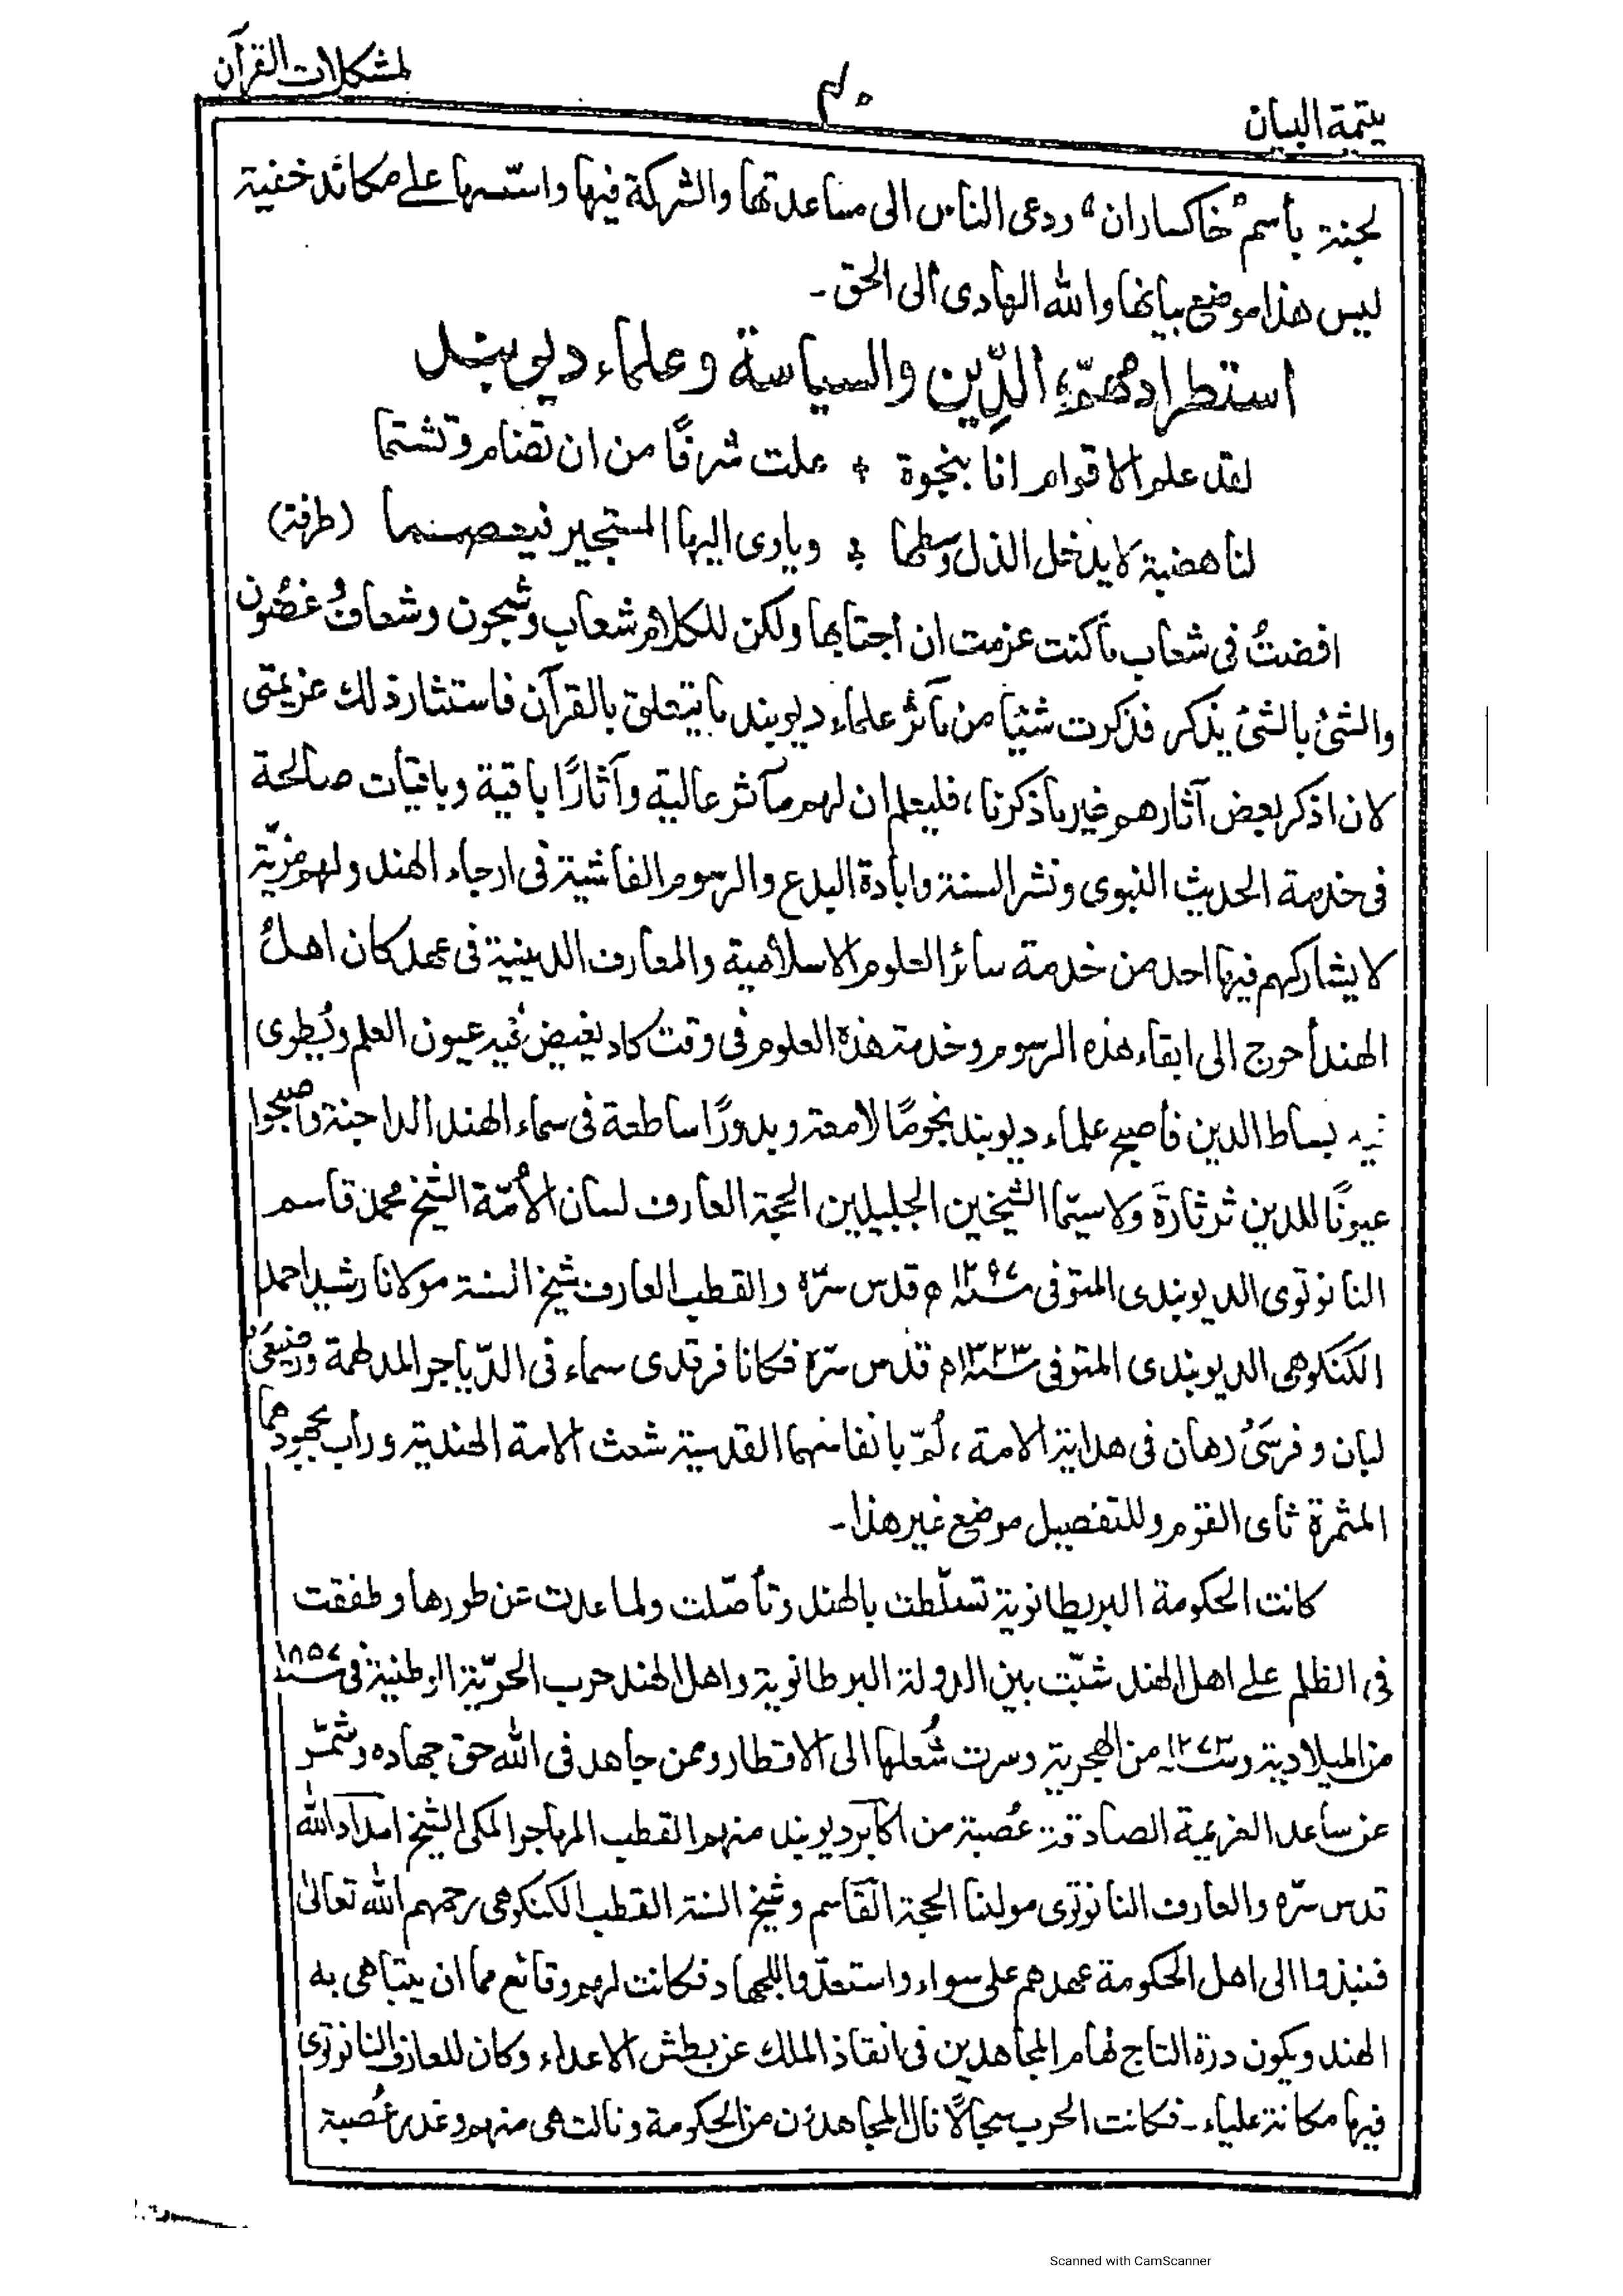 لمشكلات القرآن
٤٠
يتيمة البيان
لجنة بأسم "خاكساران" ودعى الناس الى مساعدتها والشركة فيها واسّسها على مكائد خفية
ليس هذا موضع بيانها والله الهادى الى الحق۔
استطراد مهمّ، الدِّين والسياسة وعلماء ديوبند
لقد علم الاقوام انا بنجوة ٭ علت شرفًا من ان تضام وتشتما
لنا هضبة لا يدخل الذل وسطها ٭ وياوى اليها المستجير فيعصما (طرفة)
افضتُ فى شعاب ماكنت عزمت ان اجتابها ولكن للكلام شعاب وشجون وشعافٌ وغصُون
والشئ بالشئ يذكر فذكرت شيئا من مآثر علماء ديوبند ما يتعلق بالقرآن فاستثار ذلك عزيمتى
لان اذكر بعض آثارهم غير ما ذكرنا، فليعلم ان لهم مآثر عالية وآثارًا باقية وباقيات صالحة
فى خدمة الحديث النبوى ونشر السنة وابادة البدع والرسوم الفاشية فى ارجاء الهند ولهم مزيّة
لا يشاركهم فيها احد من خدمة سائر العلوم الاسلامية والمعارف الدينية فى عهد كان اهلُ
الهند أحوج الى ابقاء هذه الرسوم وخدمة هذه العلوم فى وقت كاد يغيض فيه عيون العلم ويُطوى
فيه بساط الدين فأصبح علماء ديوبند نجومًا لامعة وبدورًا ساطعة فى سماء الهند الداجنة واصبحوا
عيونًا للدين ثرثارةً ولا سيّما الشيخين الجليلين الحجة العارف لسان الأمّة الشيخ محمد قاسم
النانوتوى الديوبندى المتوفى سنة ١٢٩٧ھ قدس سرّه والقطب العارف شيخ السنة مولانا رشيد احمد
الكنكوهى الديوبندى المتوفى سنة ١٣٢٣ھ قدس سرّه فكانا فرقدى سماء فى الدّياجر المدلهمة ورضيعَى
لبان وفرسَىْ رهان فى هداية الامة، لُمّ بانفاسهما القدسية شعث الامة الهندية ورأب بجهودهما
المثمرة ثأى القوم وللتفصيل موضع غير هذا۔
كانت الحكومة البريطانوية تسلّطت بالهند وتأصّلت ولما عدت عن طورها وطفقت
فى الظلم على اهل الهند شبّت بين الدولة البرطانوية واهل الهند حرب الحرّيّة الوطنية فى سنة ١٨٥٧
من الميلادية وسنة ١٢٧٣ من الهجرية وسرت شُعلها الى الاقطار وممن جاهد فى الله حق جهاده وشمّر
عن ساعد العزيمة الصادقة عُصبة من اكابر ديوبند منهم القطب المهاجر المكى الشيخ امداد الله
قدس سرّه والعارف النانوتوى مولنا الحجة القاسم وشيخ السنة القطب الكنكوهى رحمهم الله تعالىٰ
فنبذوا الى اهل الحكومة عهدهم على سواء واستعدّوا للجهاد فكانت لهم وقائع مما ان يتباهى به
الهند ويكون درة التاج لهام المجاهدين فى انقاذ الملك عن بطش الاعداء وكان للعارف النانوتوى
فيها مكانة علياء۔ فكانت الحرب سجالًا نال المجاهدون من الحكومة ونالت هى منهم وغدر عُصبة
Scanned with CamScanner